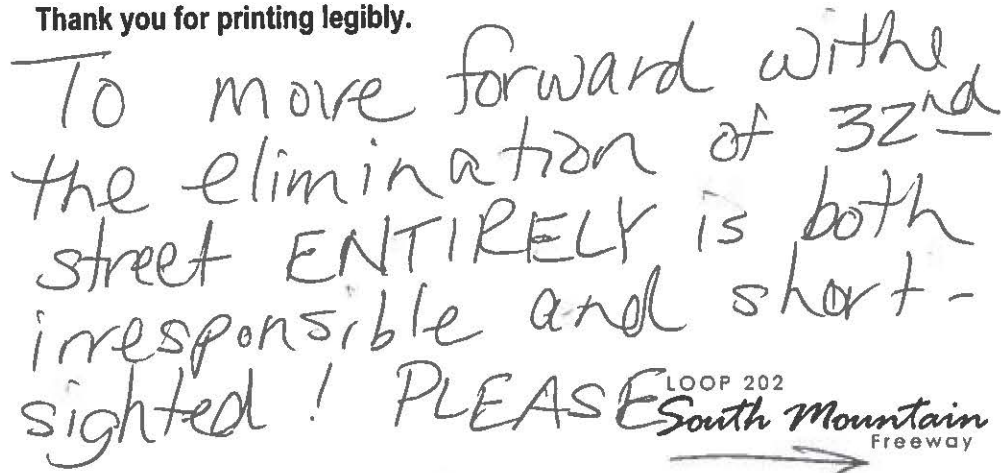 Thank you for printing legibly.
To move forward withe
the elimination of 32nd
street ENTIRELY is both
irresponsible and short-
sighted! PLEASE
LOOP 202
South Mountain
Freeway